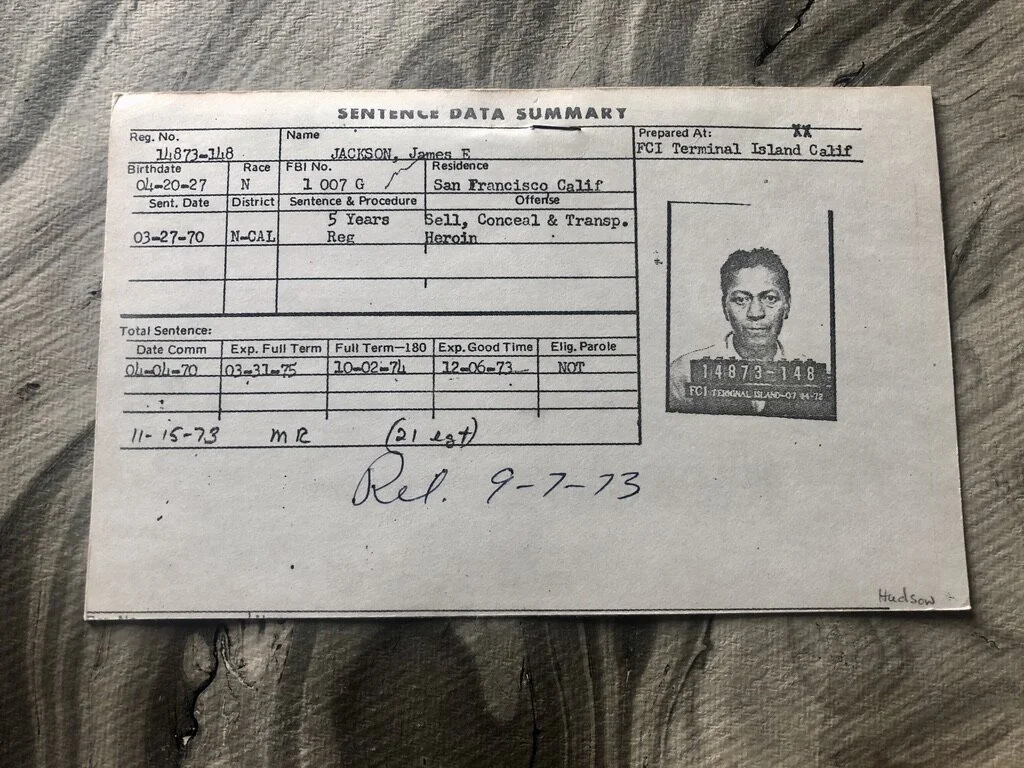 SENTENCE DATA SUMMARY
Reg. No. Name Prepared At: XX
14873-148 JACKSON, James E FCI Terminal Island Calif
Birthdate Race FBI No. Residence
04-20-27 N 1 007 G San Francisco Calif
Sent. Date District Sentence & Procedure Offense
5 Years Sell, Conceal & Transp.
03-27-70 N-CAL Reg Heroin
Total Sentence:
Date Comm Exp. Full Term Full Term—180 Exp. Good Time Elig. Parole
04-04-70 03-31-75 10-02-74 12-06-73 NOT
11-15-73 MR (21 egt)
Rel. 9-7-73
14873-148
FCI TERMINAL ISLAND-07
Hudson